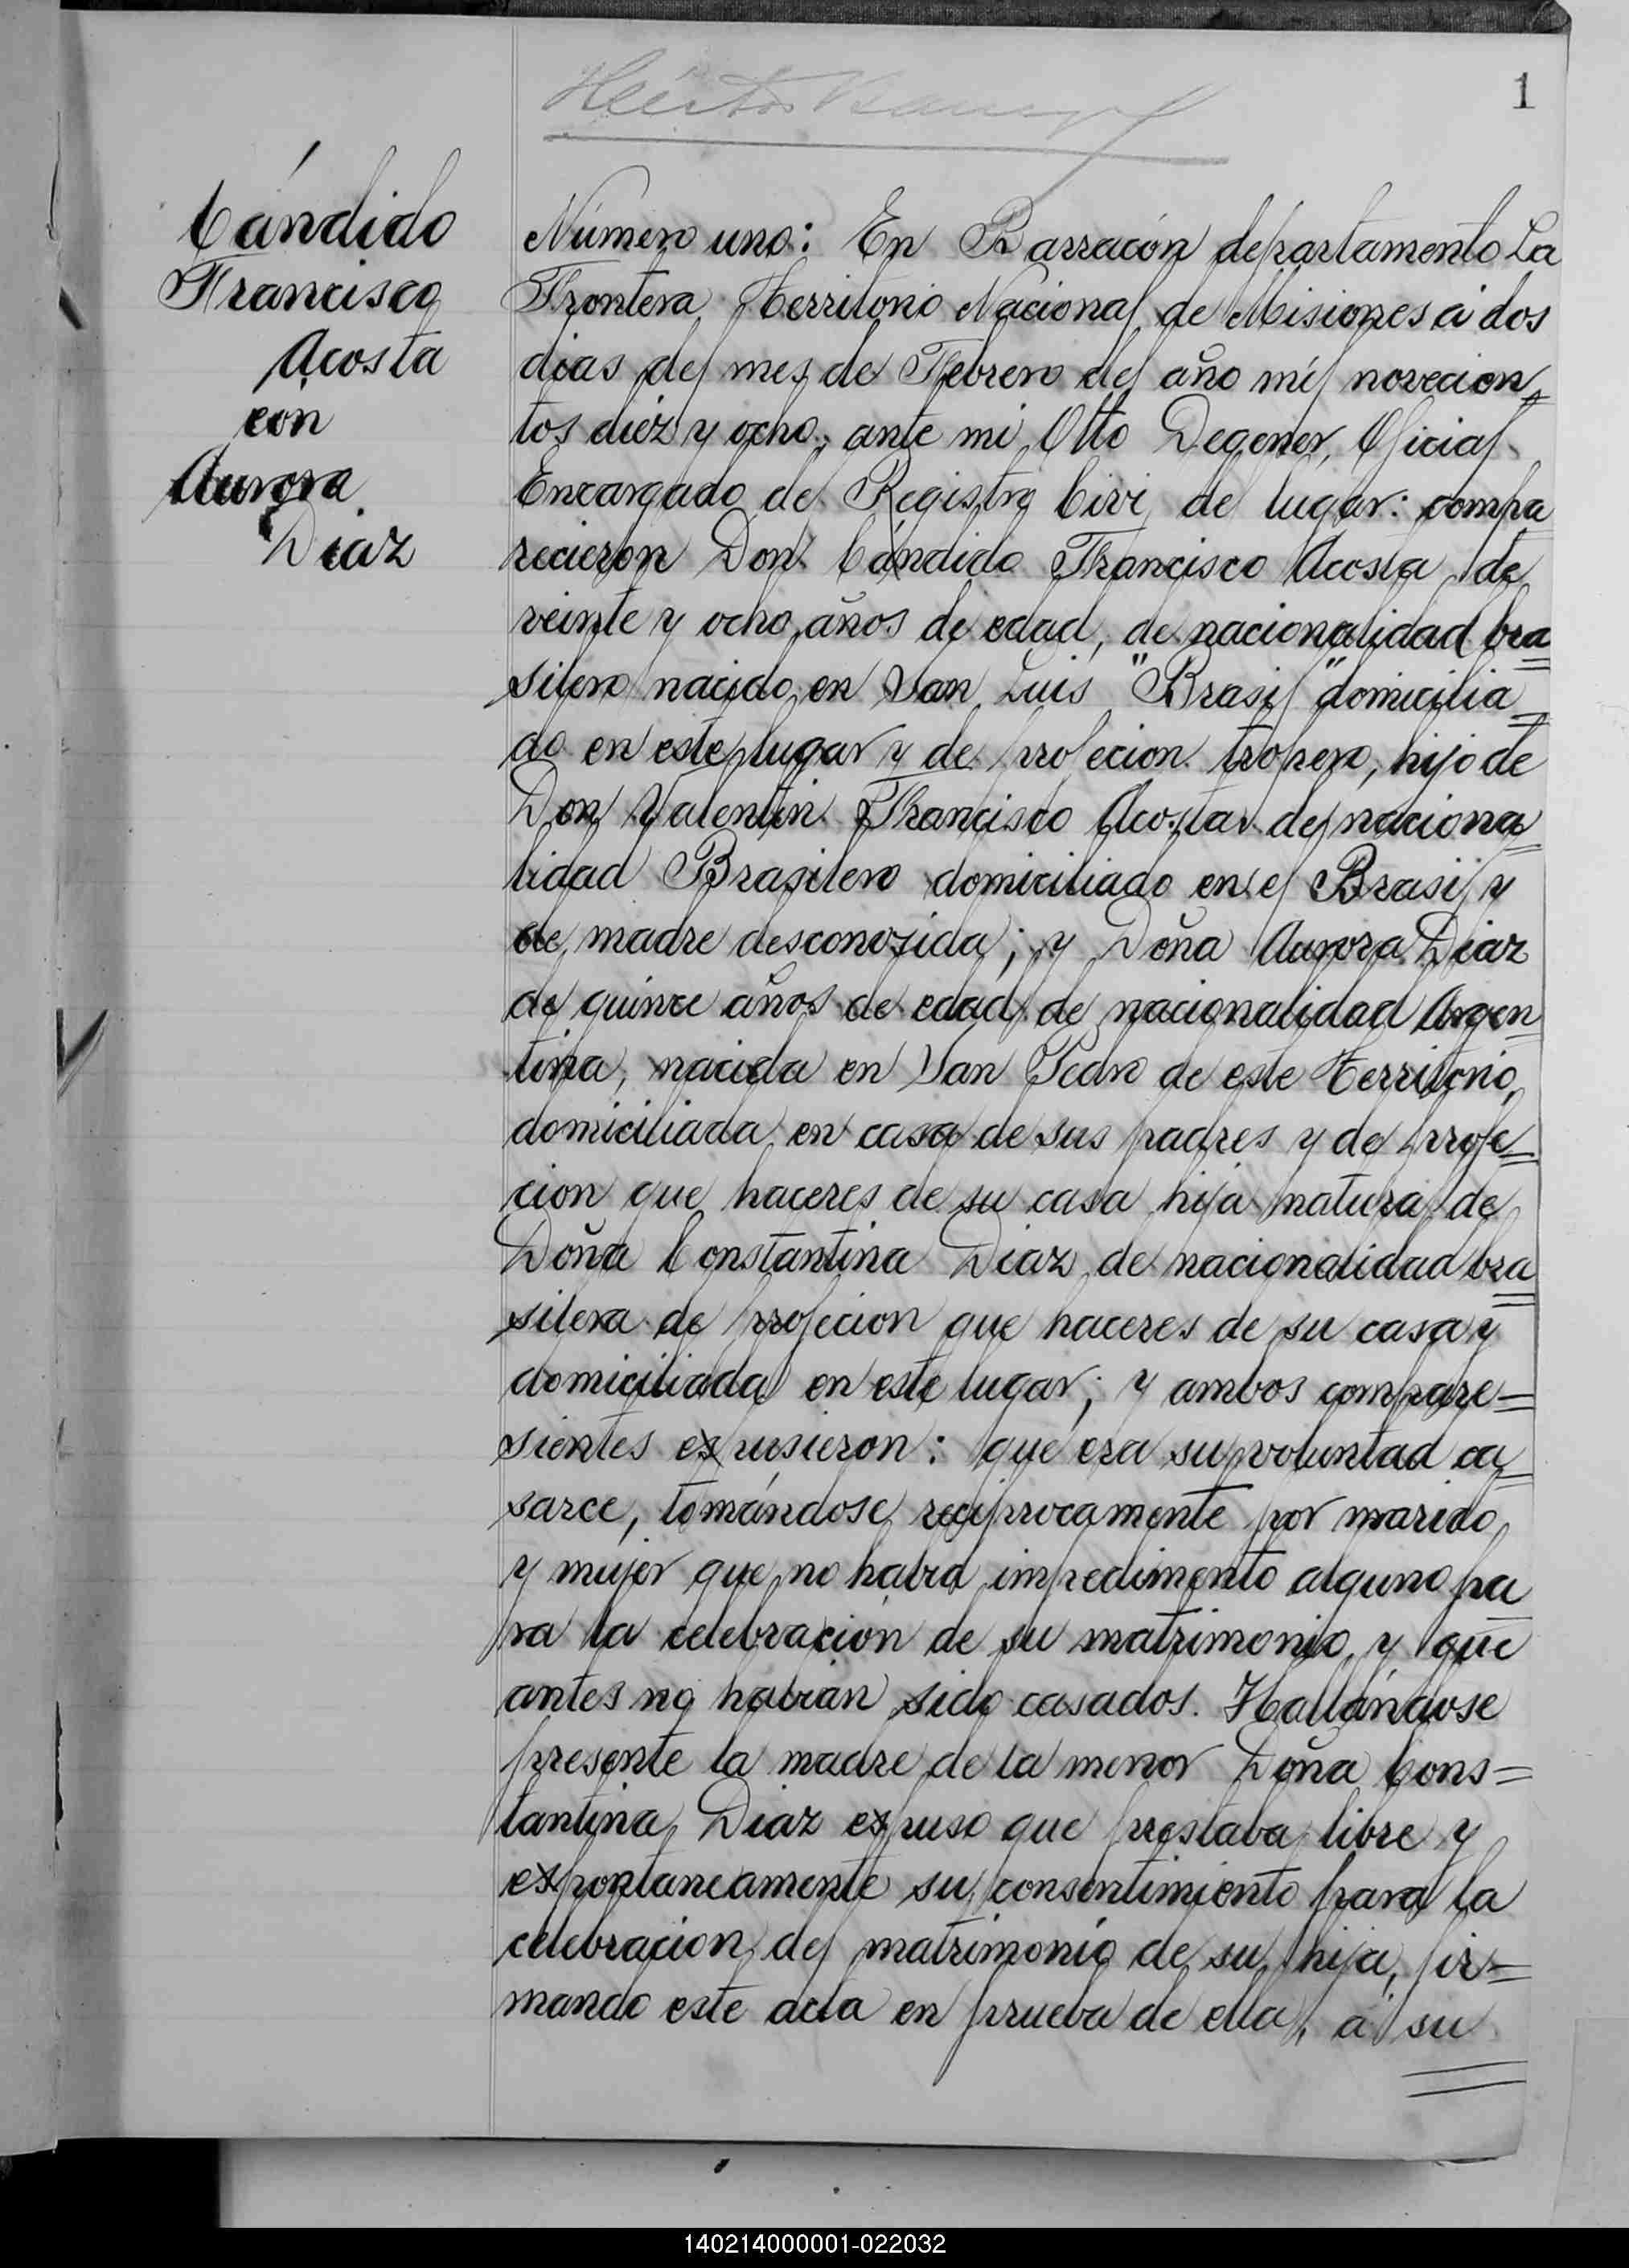 1
Cándido
Francisco
Acosta
con
Aurora
Diaz
Número uno: En Barracón departamento La
Frontera Territorio Nacional de Misiones á dos
dias del mes de Febrero del año mil novecien=
tos diez y ocho, ante mi Otto Degener, Oficial
Encargado del Registro Civil del lugar: compa
recieron Don Cándido Francisco Acosta de
veinte y ocho años de edad, de nacionalidad bra=
silero nacido en San Luis "Brasil" domicilia=
do en este lugar y de profecion tropero, hijo de
Don Valentin Francisco Acosta de naciona=
lidad Brasilero domiciliado en el Brasil y
de madre desconosida; y Doña Aurora Diaz
de quince años de edad, de nacionalidad Argen=
tina, nacida en San Pedro de este Territorio,
domiciliada en casa de sus padres y de profe=
cion que haceres de su casa hija natural de
Doña Constantina Diaz de nacionalidad bra=
silera de profecion que haceres de su casa y
domiciliada en este lugar; y ambos compare=
sientes expusieron: que era su voluntad ca=
sarce, tomándose reciprocamente por marido
y mujer que no habia impedimento alguno pa
ra la celebración de su matrimonio, y que
antes no habian sido casados. Hallándose
presente la madre de la menor Doña Cons=
tantina Diaz expuso que prestaba libre y
expontaneamente su consentimiento para la
celebracion del matrimonio de su hija, fir=
mando este acta en prueba de ella, á su
140214000001-022032